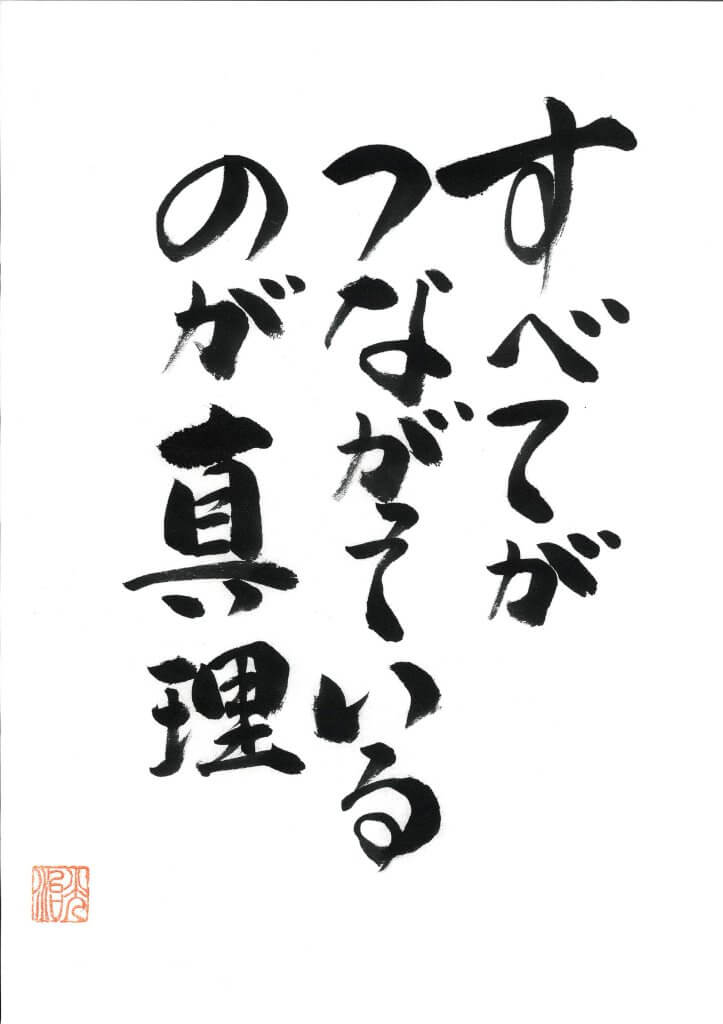 すべてが
つながっている
のが真理